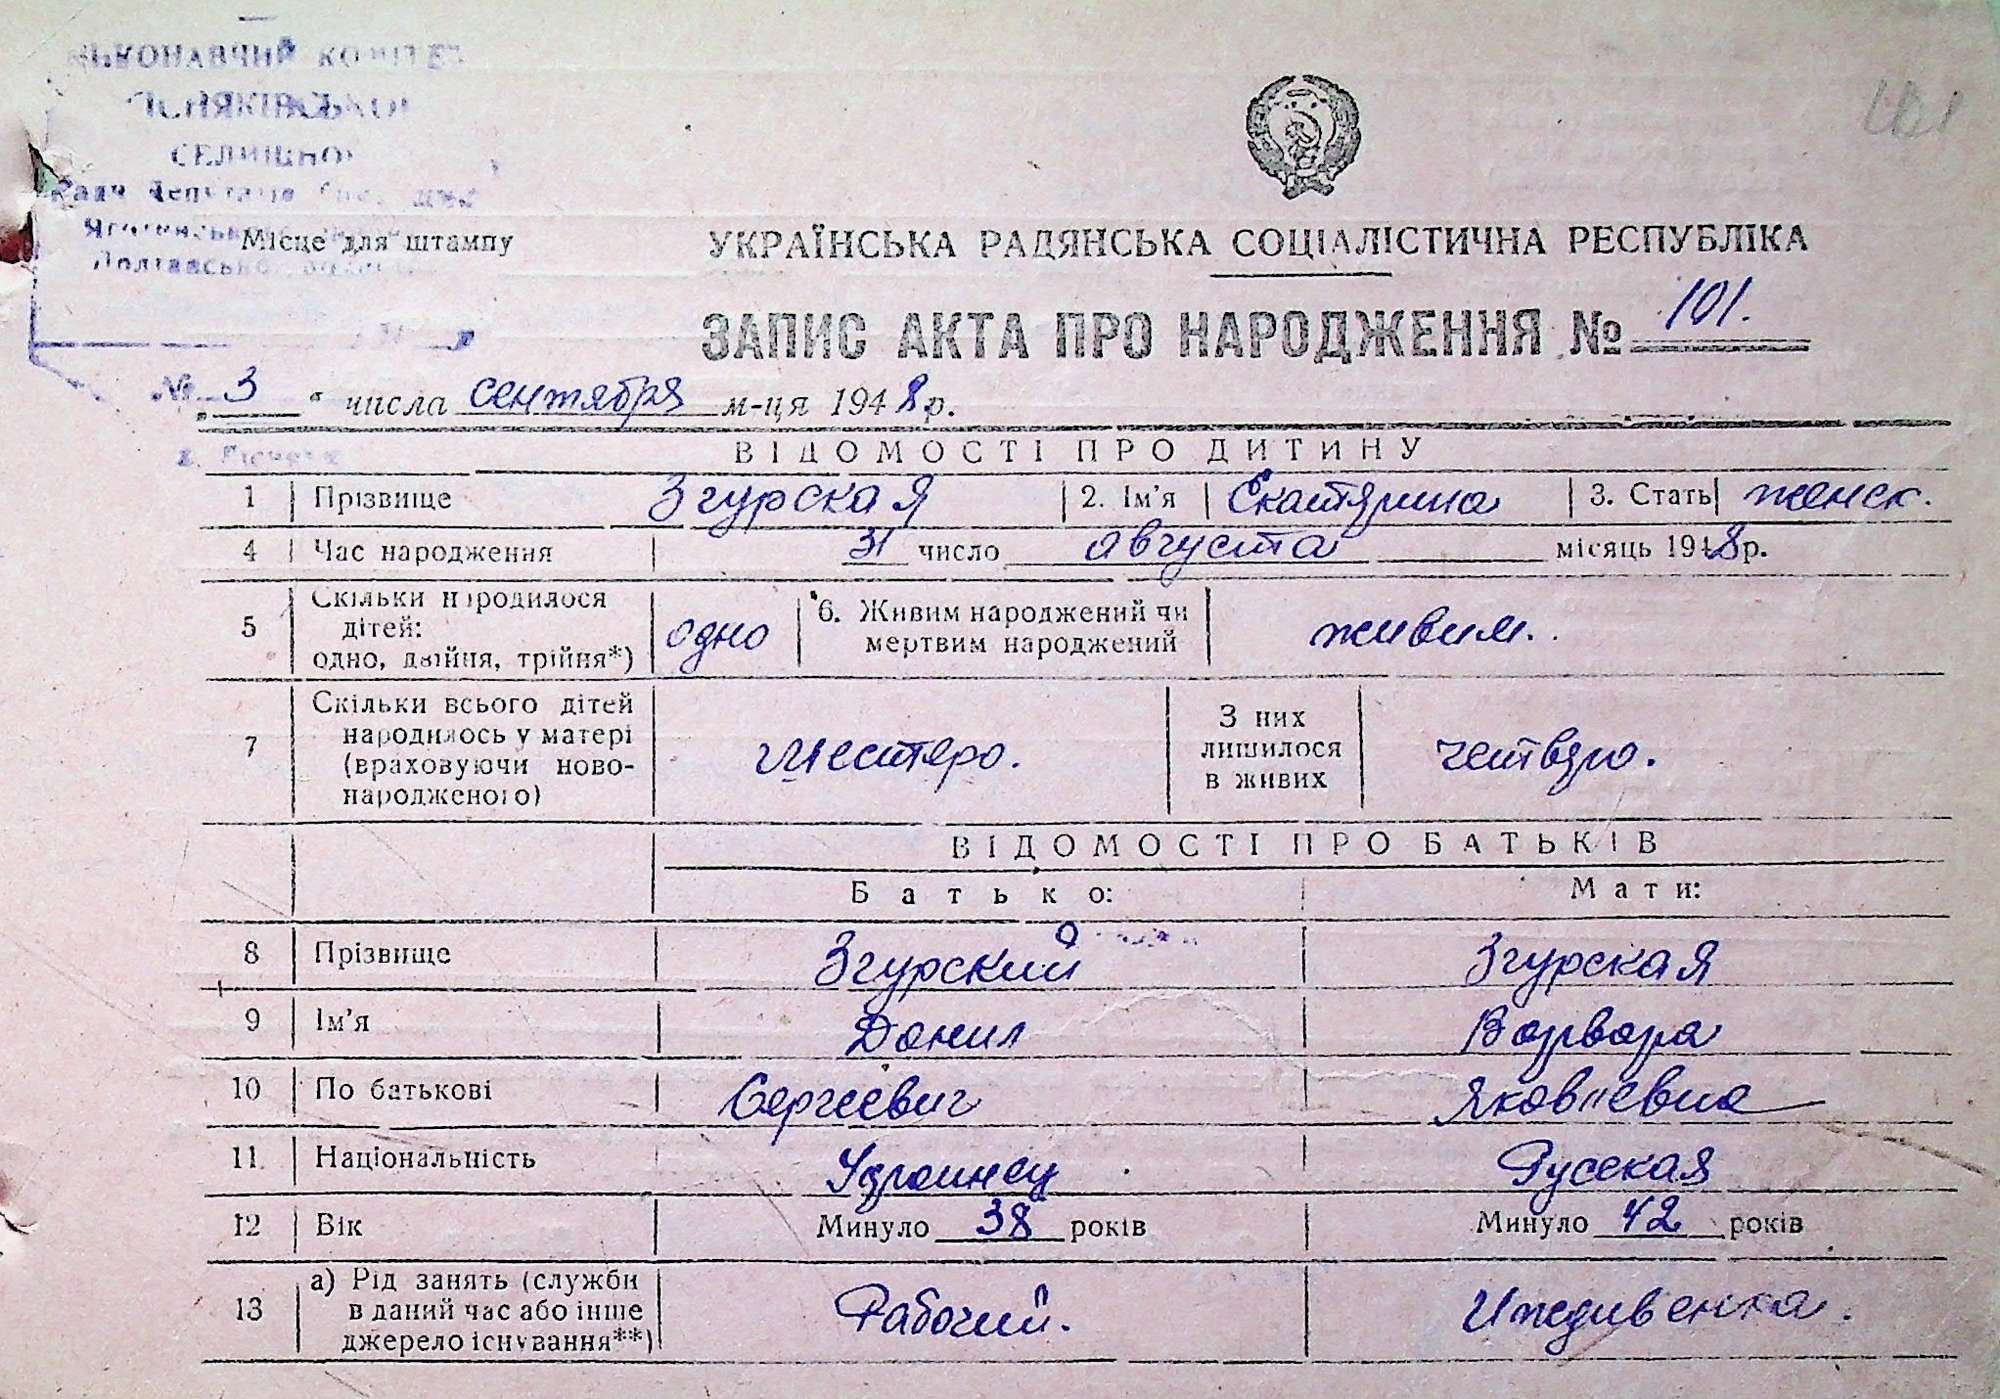 СЕЛИЩНОЇ
Місце для штампу
101
УКРАЇНСЬКА РАДЯНСЬКА СОЦІАЛІСТИЧНА РЕСПУБЛІКА
ЗАПИС АКТА ПРО НАРОДЖЕННЯ № 101.
„ 3 “ числа сентября м-ця 1948 р.
ВІДОМОСТІ ПРО ДИТИНУ
1 Прізвище Згурская 2. Ім’я Екатярина 3. Стать женск.
4 Час народження 31 число августа місяць 1948 р.
5 Скільки народилося дітей: одно, двійня, трійня*) одно 6. Живим народжений чи мертвим народжений живим.
7 Скільки всього дітей народилось у матері (враховуючи ново-народженого) шестяро. З них лишилося в живих четвяро.
ВІДОМОСТІ ПРО БАТЬКІВ
Батько: Мати:
8 Прізвище Згурский Згурская
9 Ім’я Данил Варвара
10 По батькові Сергеевич Яковлевна
11 Національність Украинец Русская
12 Вік Минуло 38 років Минуло 42 років
13 а) Рід занять (служби в даний час або інше джерело існування**) Рабочий. Иждивенка.